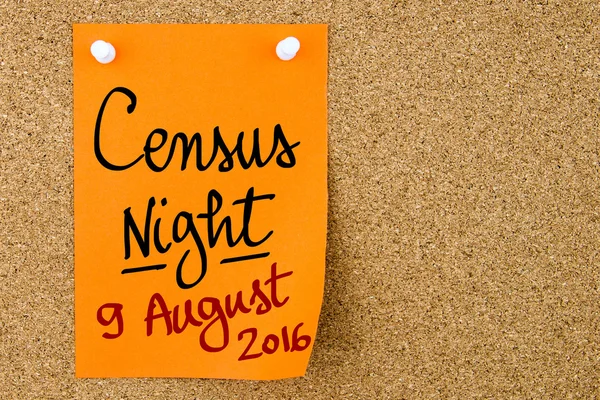 Census
Night
9 August
2016